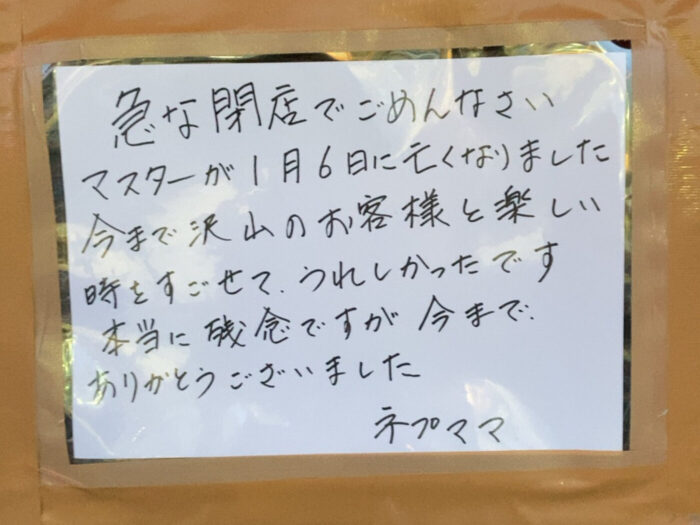 急な閉店でごめんなさい
マスターが1月6日に亡くなりました
今まで沢山のお客様と楽しい
時をすごせて、うれしかったです
本当に残念ですが今まで、
ありがとうございました
ネプママ